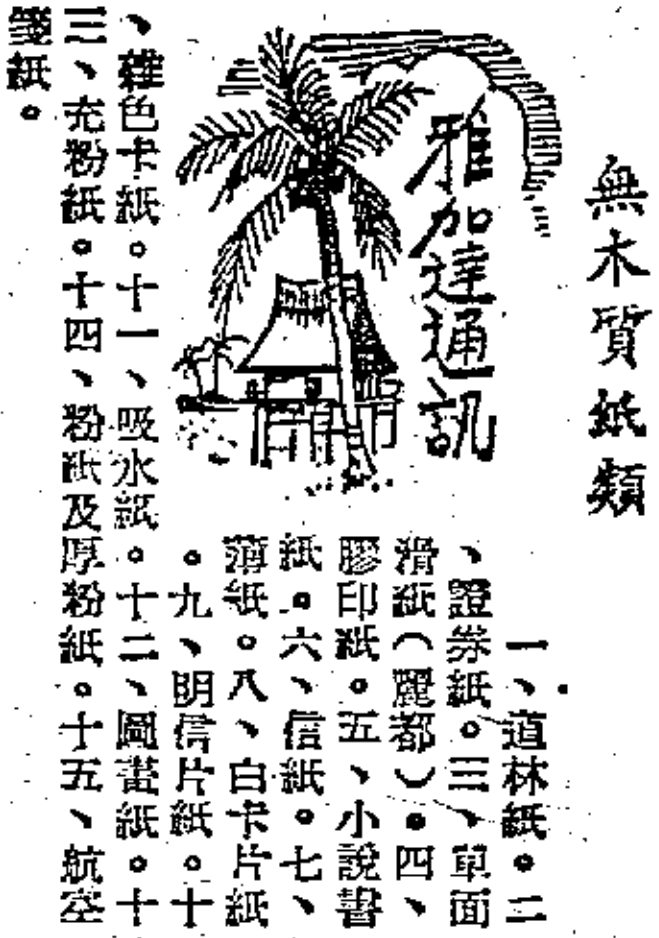 無木質紙類
雅加達通訊
一、道林紙。二
、證券紙。三、單面
滑紙（麗都）。四、
膠印紙。五、小說書
紙。六、信紙。七、
薄紙。八、白卡片紙
。九、明信片紙。十
、雜色卡紙。十一、吸水紙。十二、圖畫紙。十
三、充粉紙。十四、粉紙及厚粉紙。十五、航空
箋紙。